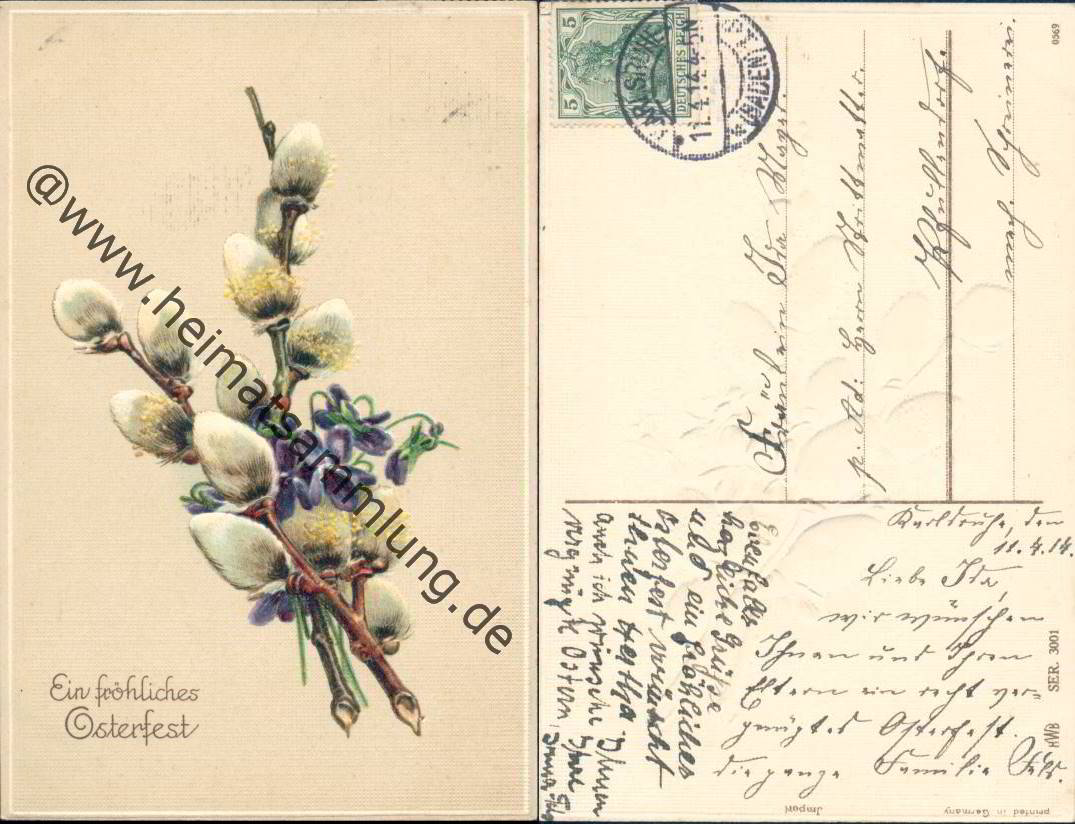 @www.heimatsammlung.de
Ein fröhliches
Osterfest
5
5
DEUTSCHES REICH
KARLSRUHE
11.4.14
(BADEN)
0569
Fräulein Ida
p. Ad: Herrn Strittmatter.
Pfullendorf.
Karlsruhe, den
11.4.14.
Liebe Ida,
wir wünschen
Ihnen und Ihren
Eltern ein recht ver-
gnügtes Osterfest.
die ganze Familie
Ebenfalls
herzliche Grüße
und ein fröhliches
Osterfest wünscht
Ihnen Hertha
auch ich wünsche Ihnen
vergnügte Ostern
HWB SER. 3001
Import
printed in Germany